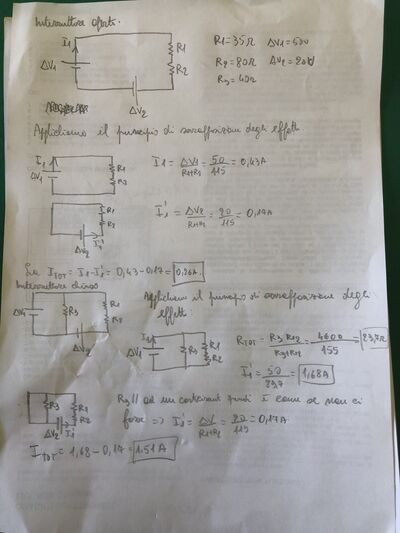 Interruttore aperto.
I1
R1
R2
ΔV1
ΔV2
R1=35Ω ΔV1=50V
R2=80Ω ΔV2=20V
R3=40Ω
Applichiamo il principio di sovrapposizione degli effetti
I1
ΔV1
R1
R2
I1 = ΔV1/R1+R2 = 50/115 = 0,43A
R1
R2
ΔV2
I1'
I1' = ΔV2/R1+R2 = 20/115 = 0,17A
ITOT = I1-I1' = 0,43-0,17= 0,26A.
Interruttore chiuso
ΔV1
R3
R1
R2
ΔV2
Applichiamo il principio di sovrapposizione degli
effetti:
I1
ΔV1
R3
R1
R2
RTOT = R3 R12/R3+R12 = 4600/155 = 29,7Ω
I1 = 50/29,7 = 1,68A
R3
R1
R2
ΔV2
I1'
R3 // ad un cortocircuito quindi è come se non ci
fosse => I1' = ΔV/R1+R2 = 20/115 = 0,17A
ITOT = 1,68-0,17= 1.51A